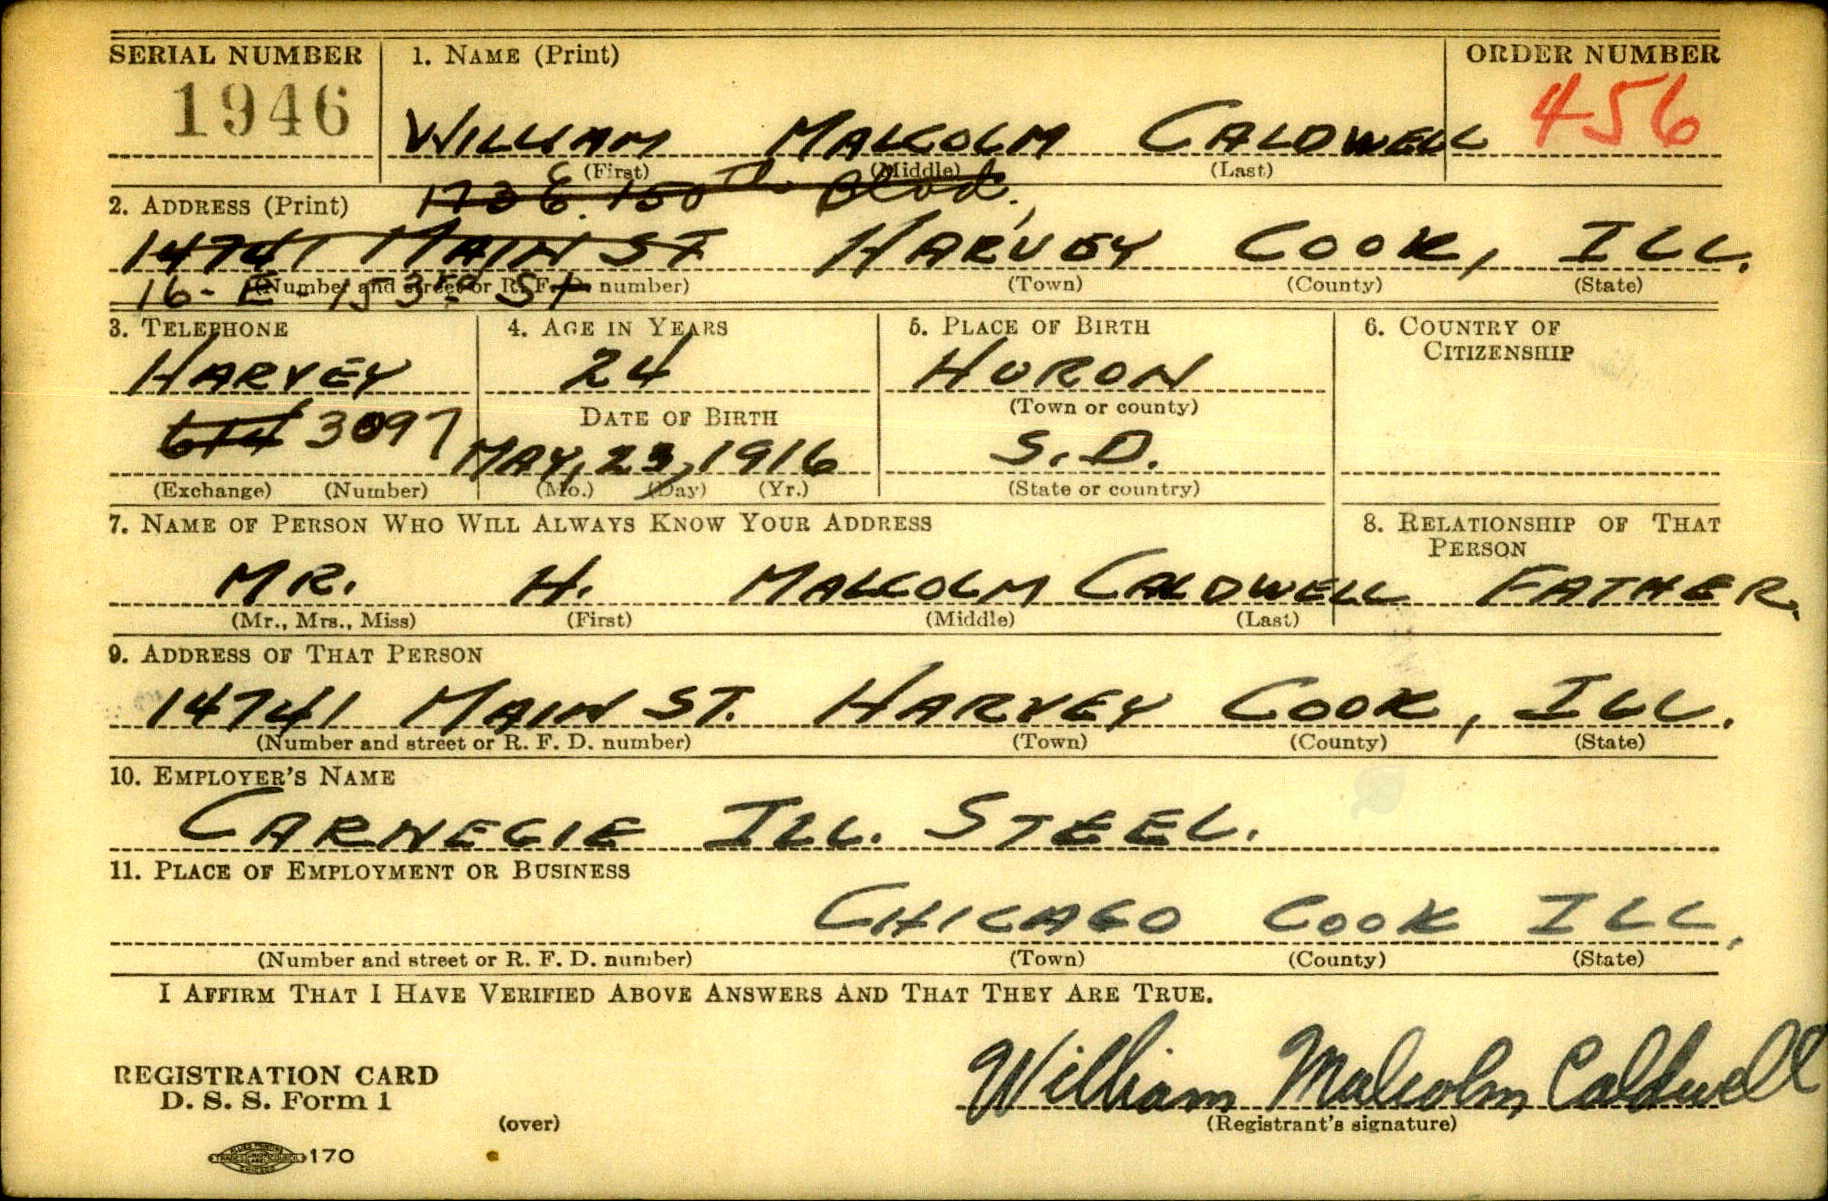 SERIAL NUMBER 1. NAME (Print) ORDER NUMBER
1946 WILLIAM MALCOLM CALDWELL 456
(First) (Middle) (Last)
173 E. 150TH Blvd.,
2. ADDRESS (Print)
14741 MAIN ST HARVEY COOK, ILL.
16 - E - 153RD St
(Number and street or R. F. D. number) (Town) (County) (State)
3. TELEPHONE 4. AGE IN YEARS 5. PLACE OF BIRTH 6. COUNTRY OF CITIZENSHIP
HARVEY 24 HURON
DATE OF BIRTH (Town or county)
614 3097 MAY, 23, 1916 S. D.
(Exchange) (Number) (Mo.) (Day) (Yr.) (State or country)
7. NAME OF PERSON WHO WILL ALWAYS KNOW YOUR ADDRESS 8. RELATIONSHIP OF THAT PERSON
MR. H. MALCOLM CALDWELL FATHER.
(Mr., Mrs., Miss) (First) (Middle) (Last)
9. ADDRESS OF THAT PERSON
14741 MAIN ST. HARVEY COOK, ILL.
(Number and street or R. F. D. number) (Town) (County) (State)
10. EMPLOYER'S NAME
CARNEGIE ILL. STEEL.
11. PLACE OF EMPLOYMENT OR BUSINESS
CHICAGO COOK ILL,
(Number and street or R. F. D. number) (Town) (County) (State)
I AFFIRM THAT I HAVE VERIFIED ABOVE ANSWERS AND THAT THEY ARE TRUE.
William Malcolm Caldwell
REGISTRATION CARD
D. S. S. Form 1
(over) (Registrant's signature)
170